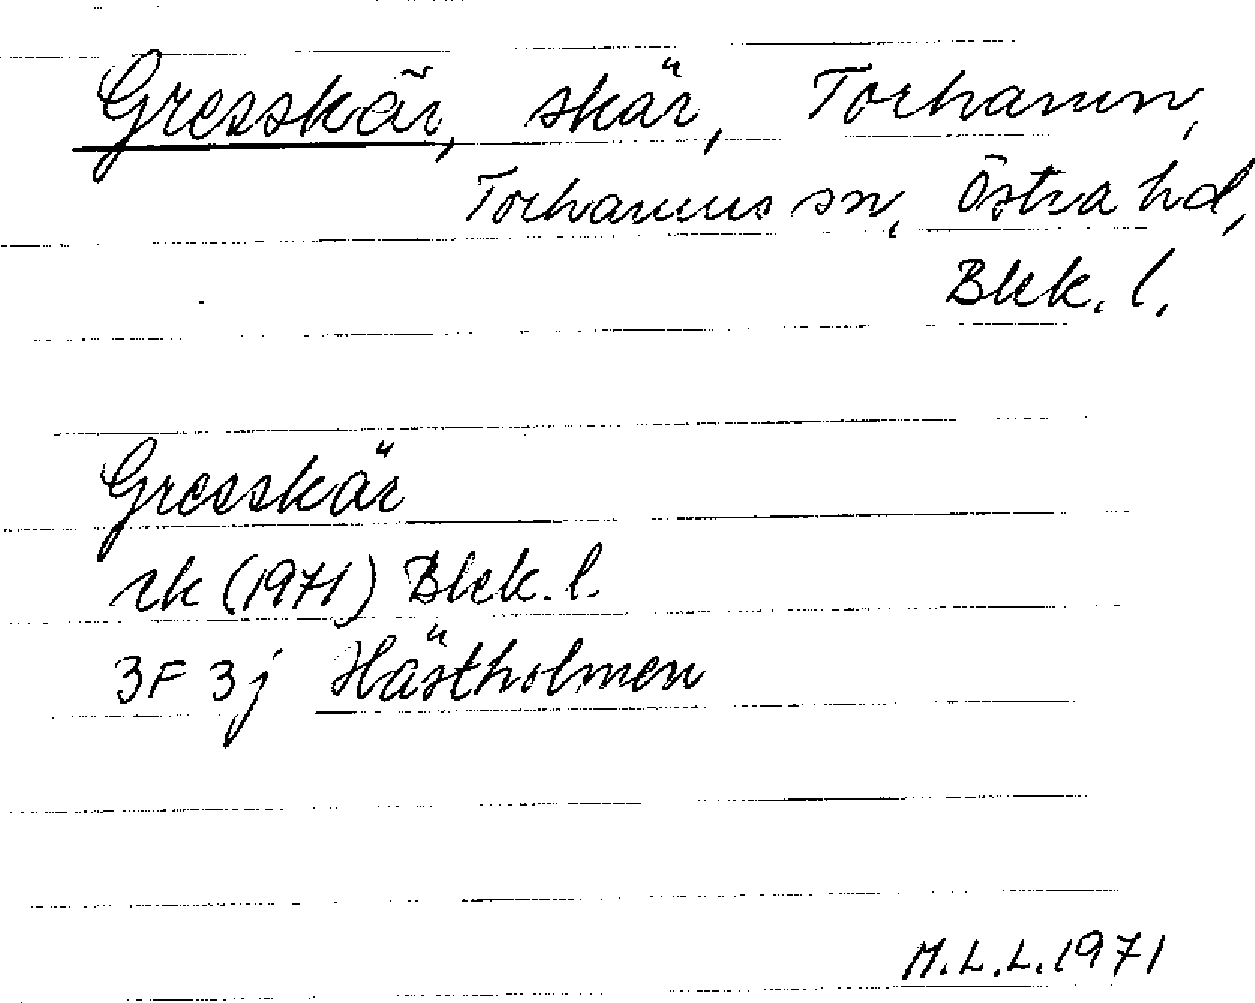 Gresskär, skär, Torhamn,
Torhamns sn, Östra hd,
Blek. l.
Gresskär
rk (1971) Blek. l.
3F 3j Hästholmen
M.L.L. 1971